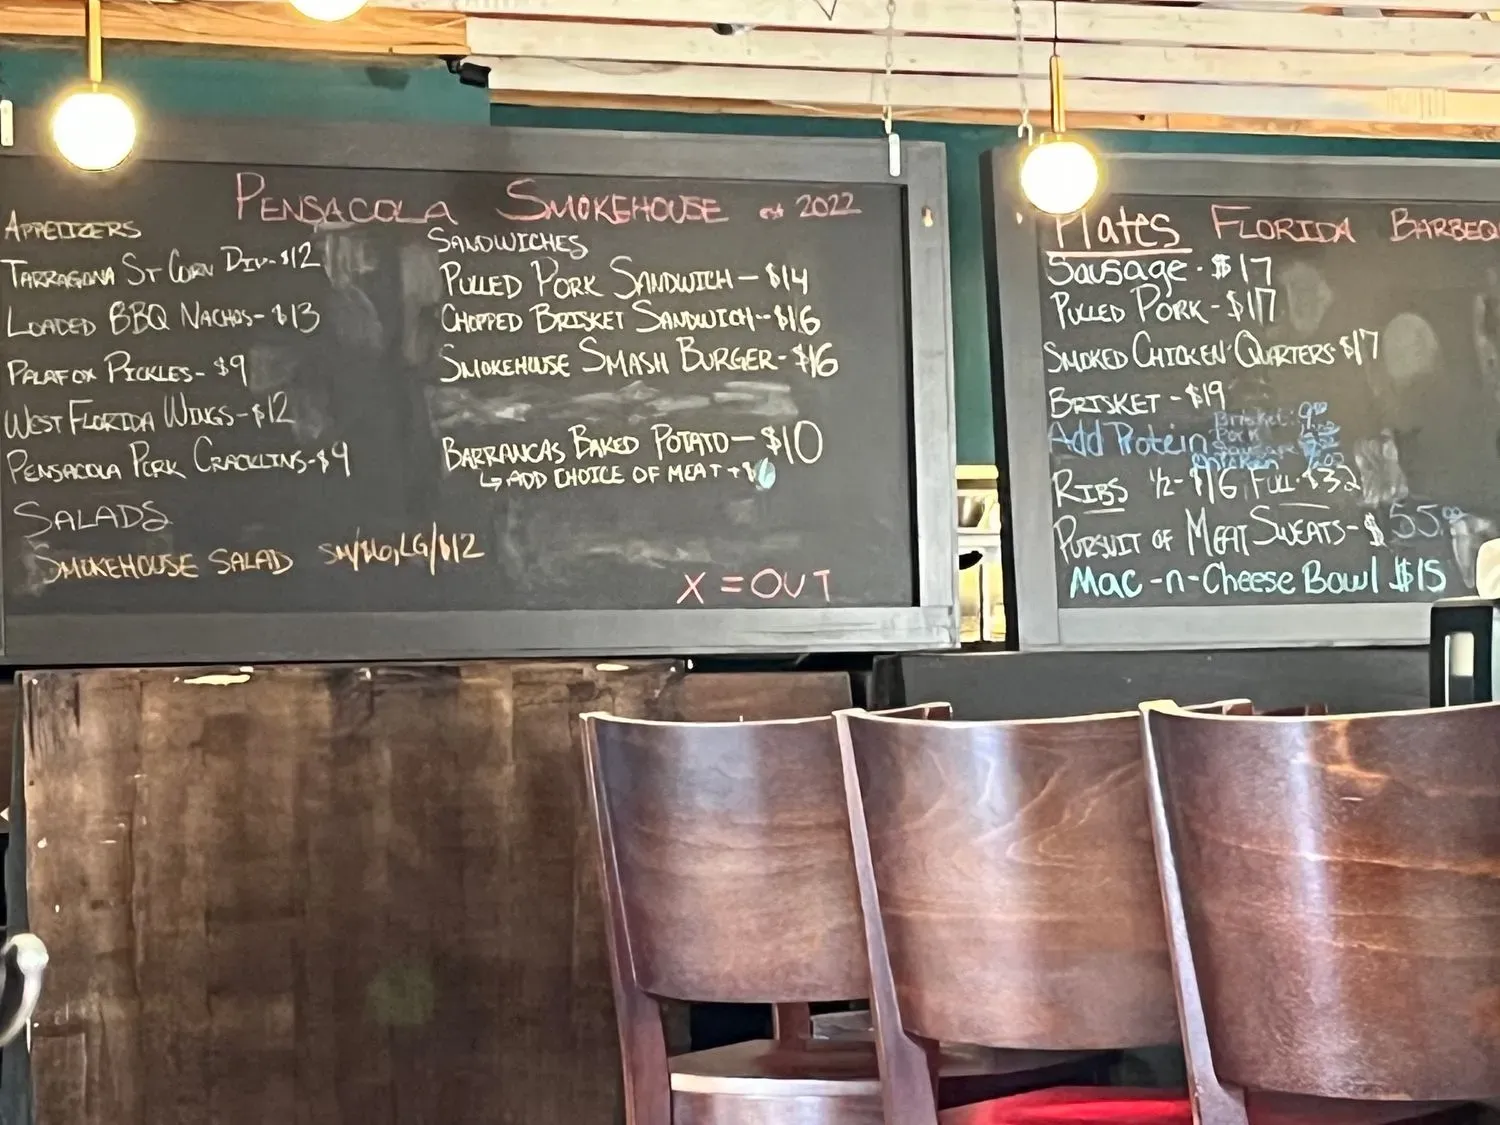 PENSACOLA SMOKEHOUSE est 2022
APPETIZERS
TARRAGONA ST CORN DIP-$12
LOADED BBQ NACHOS-$13
PALAFOX PICKLES-$9
WEST FLORIDA WINGS-$12
PENSACOLA PORK CRACKLINS-$9
SALADS
SMOKEHOUSE SALAD SM/$6,LG/$12
SANDWICHES
PULLED PORK SANDWICH-$14
CHOPPED BRISKET SANDWICH-$16
SMOKEHOUSE SMASH BURGER-$16
BARRANCAS BAKED POTATO-$10
↳ADD CHOICE OF MEAT+$6
X=OUT
Plates FLORIDA BARBEQ
Sausage-$17
PULLED PORK-$17
SMOKED CHICKEN QUARTERS-$17
BRISKET-$19
Add Protein
Brisket:
Pork
Sausage
Chicken
RIBS 1/2-$16 FULL-$32
PURSUIT OF MEAT SWEATS-$55.00
Mac-n-Cheese Bowl $15